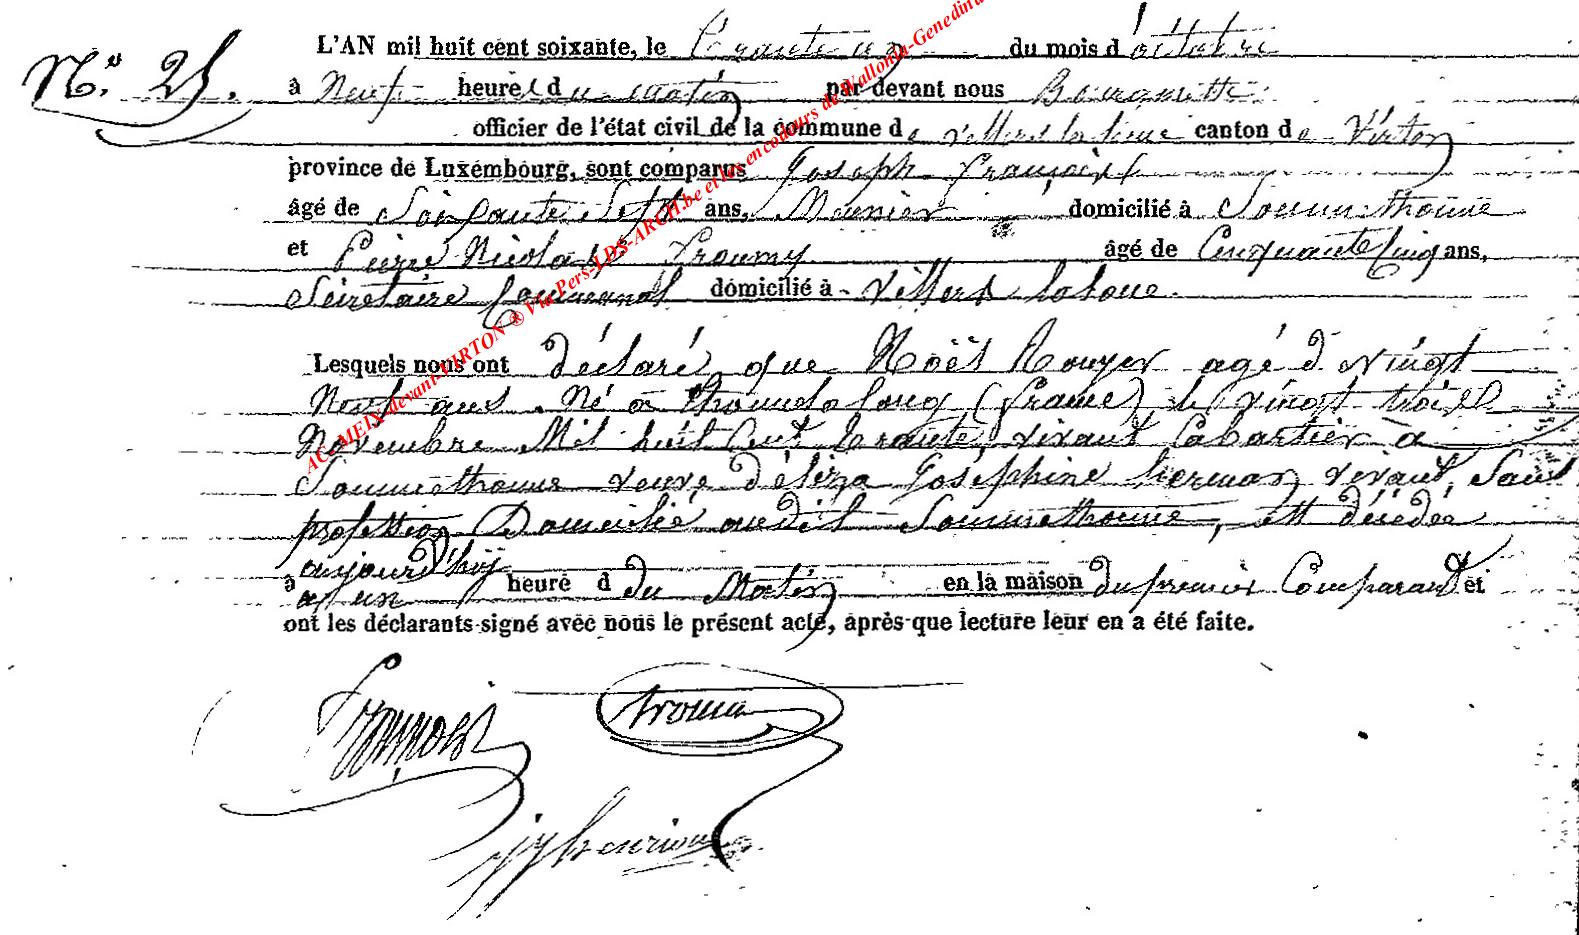 N.° 25.
L'AN mil huit cent soixante, le trente un du mois d'octobre
à Neuf heures d du matin par devant nous Bourgmestre
officier de l'état civil de la commune de villers la loue canton de Virton
province de Luxembourg, sont comparus Joseph François
âgé de Soixante Sept ans, Meunier domicilié à Sommethonne
et Pierre Nicolas Froumy âgé de Cinquante Cinq ans,
Secretaire Communal domicilié à Villers la loue.
Lesquels nous ont déclaré que Noël Rouyer agé d vingt
Neuf ans. Né à thonne la long (france) le vingt trois
Novembre Mil huit Cent trente, vivant Cabartier à
Sommethonne veuve d'éliza Joséphine herman vivant Sans
profession Domicilié audit Sommethonne, est décédée
aujourd'huj
à a un heure d du Matin en la maison du premier Comparant et
ont les déclarants signé avec nous le présent acte, après que lecture leur en a été faite.
François
AC. MEIX-devant-VIRTON ® Via Pers-LDS-ARCH.be et les encodeurs de Wallonia-Genedinard